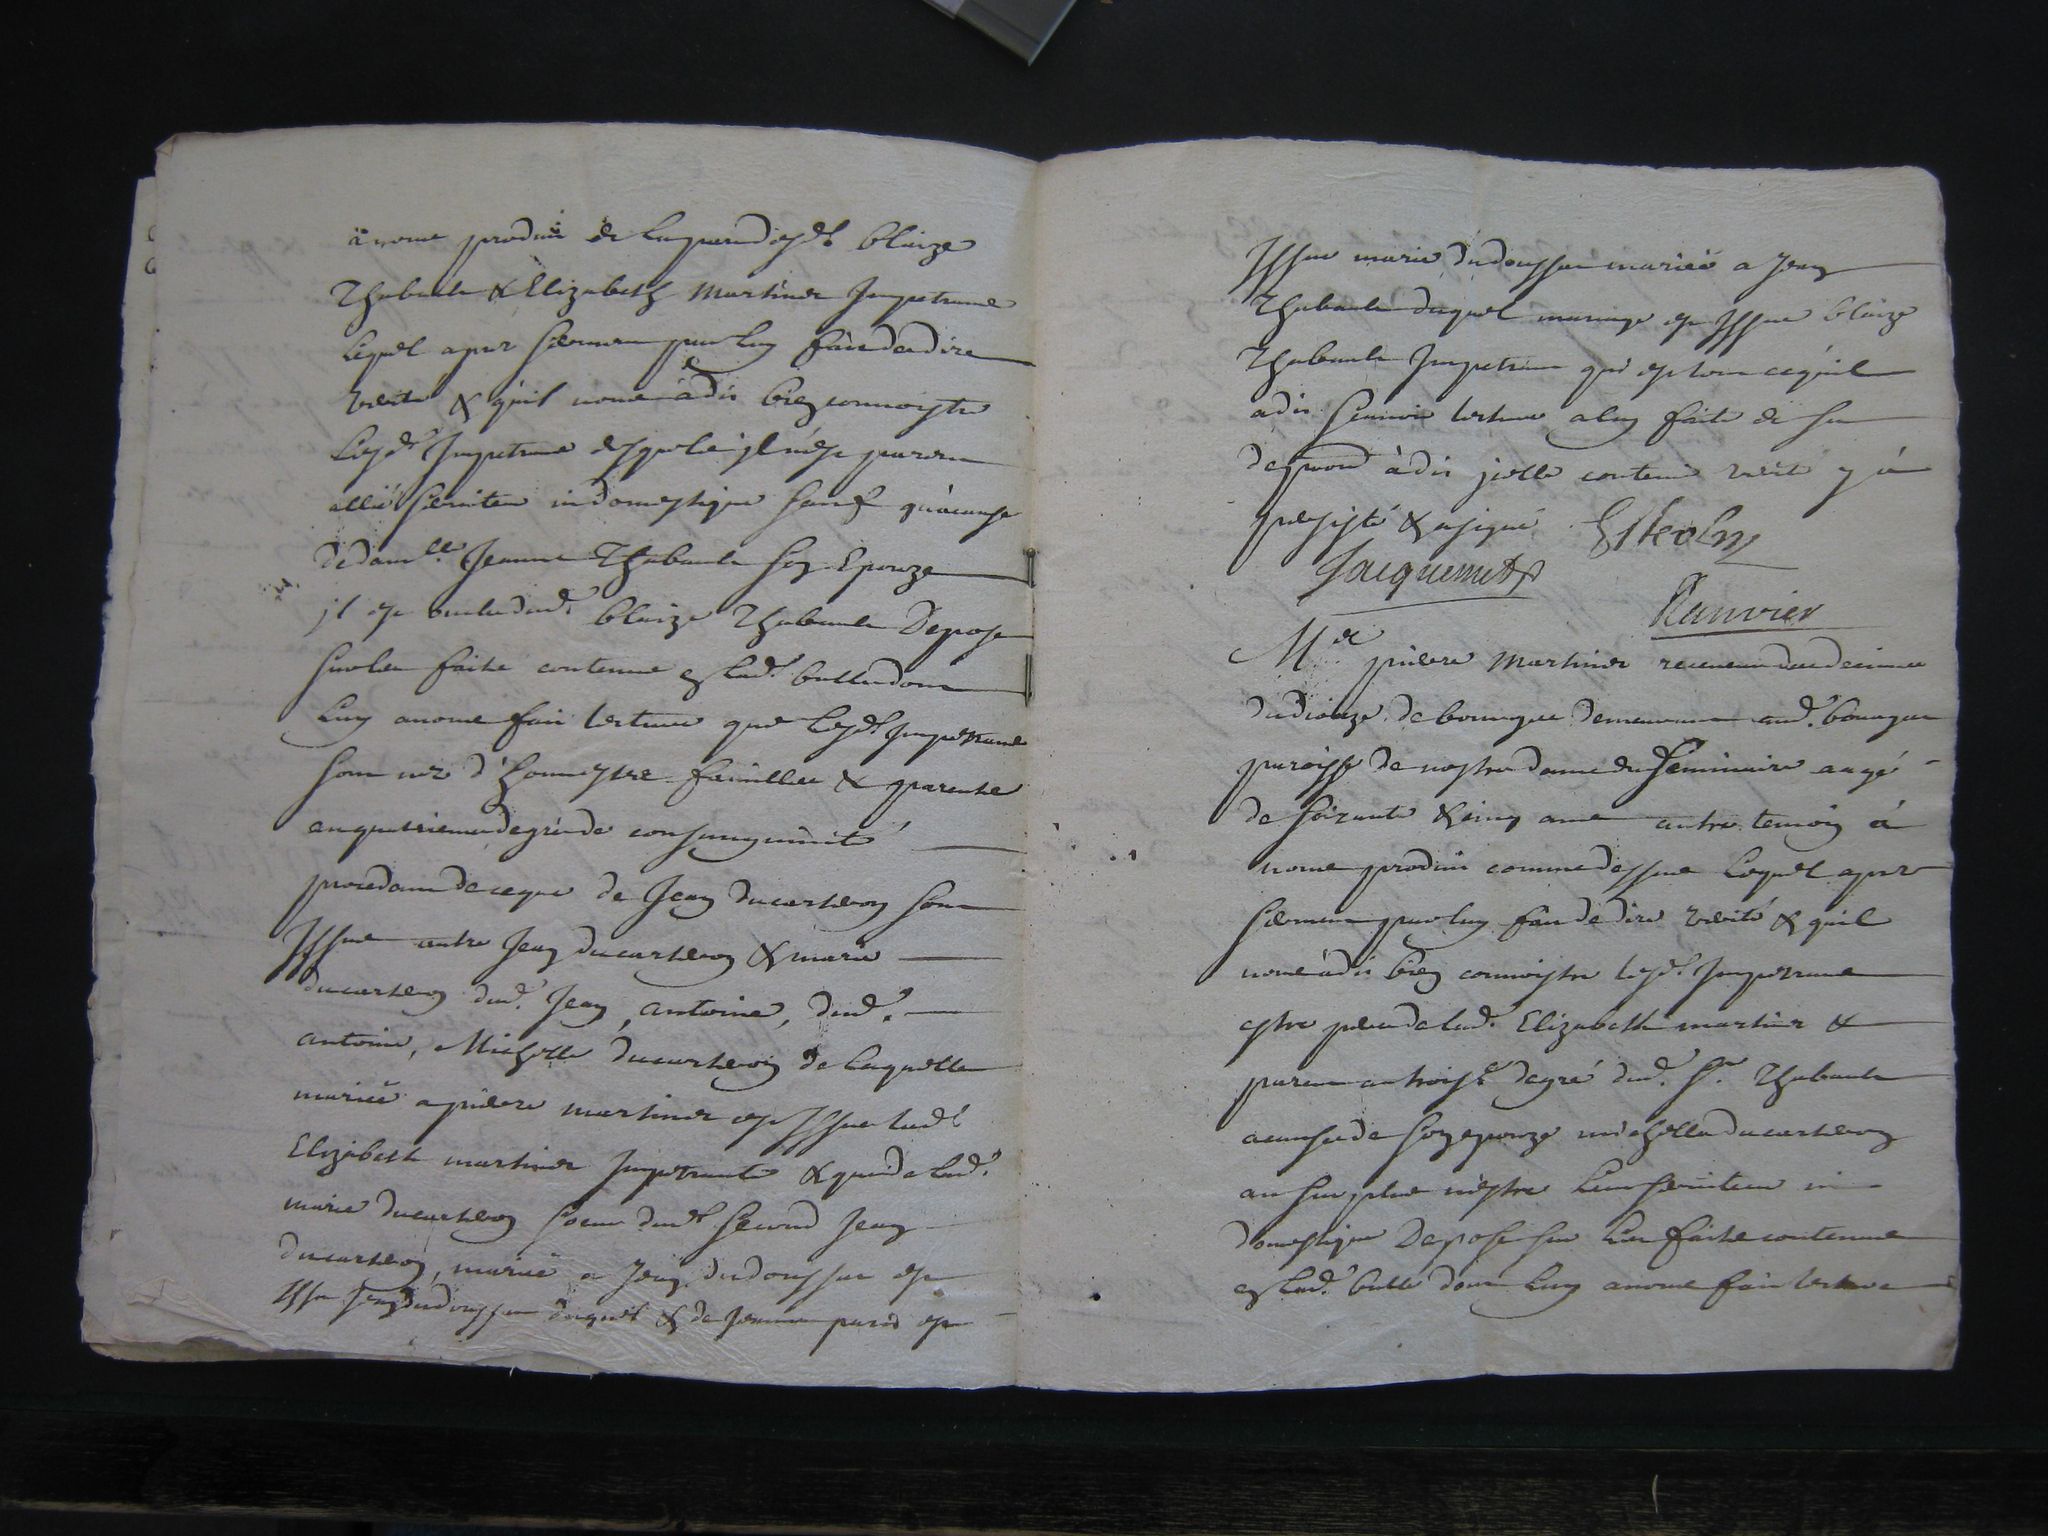 à nous produit de la part desd. blaize
Thabault & Elizabeth Martinet Impetrans
lequel apres serment par luy fait de dire
verité & qu'il nous à dit bien connoistre
lesd. Impetrans desquels il n'est parent
allié serviteur ny domestique sauf qu'acause
de dam.lle Jeanne Thabault son Epouze
il est dud. blaize Thabault Depose
sur les faits contenus en lad. bulle dont
luy avons fait lecture que lesd. Impetrans
sont nez d'honnestre famillee & parents
au quatrieme degré de consanguinité
procedant de ce que de Jean ducarteron sont
Issus autre Jean ducarteron & marie
ducarteron dud. Jean, antoine, dud.
antoine, Michelle ducarteron de laquelle
mariée a pierre martinet est Issue lad.
Elizabeth martinet Impetrante & que de lad.
marie ducarteron soeur dud. second Jean
ducarteron, mariée a Jean dudoussat est
Issu Jean dudoussat duquel & de Jeanne est
Issue marie dudoussat mariée a Jean
Thabault duquel mariage est Issu blaize
Thabault Impetrant qui est tout ce qu'il
a dit scavoir lecture a luy faite de sa
depposition à dit icelle contenir verité y à
persisté & a signé
Jacquemet
Ranvier
M.re pierre Martinet receveur des decimes
du dioceze de demeurant aud.
paroisse de nostre dame du Seminaire aagé
de soixante & cinq ans autre temoin à
nous produit comme dessus lequel apres
serment par luy fait de dire verité & quil
nous à dit bien connoistre lesd. Impetrans
estre pere de lad. Elizabeth martinet &
parent au trois.e degré dud. S.r Thabault
a cause de son epouze michelle ducarteron
au surplus n'estre leur serviteur ny
domestique Depose sur les faits contenus
en lad. bulle dont luy avons fait lecture